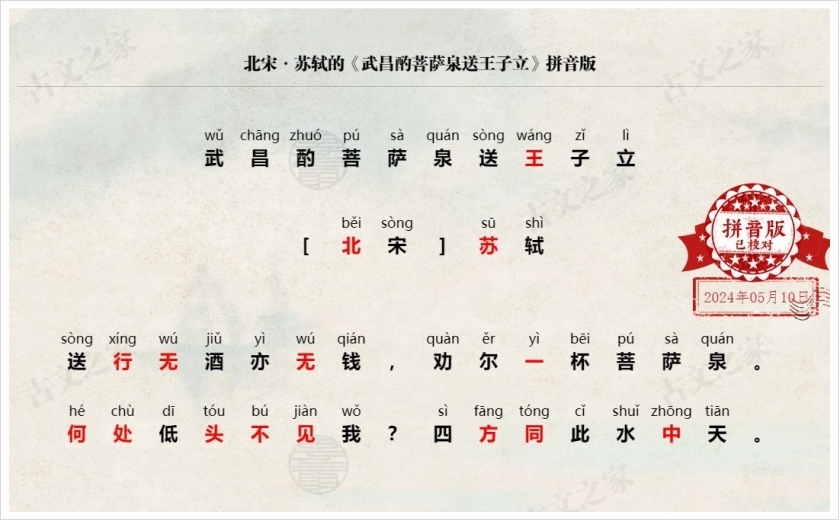 北宋·苏轼的《武昌酌菩萨泉送王子立》拼音版
wǔ chāng zhuó pú sà quán sòng wáng zǐ lì
武昌酌菩萨泉送王子立
běi sòng sū shì
[北宋]苏轼
拼音版
已校对
2024年05月10日
sòng xíng wú jiǔ yì wú qián quàn ěr yì bēi pú sà quán
送行无酒亦无钱，劝尔一杯菩萨泉。
hé chù dī tóu bú jiàn wǒ sì fāng tóng cǐ shuǐ zhōng tiān
何处低头不见我？四方同此水中天。
古文之家
古文之家
古文之家
古文之家
古文之家
古文之家